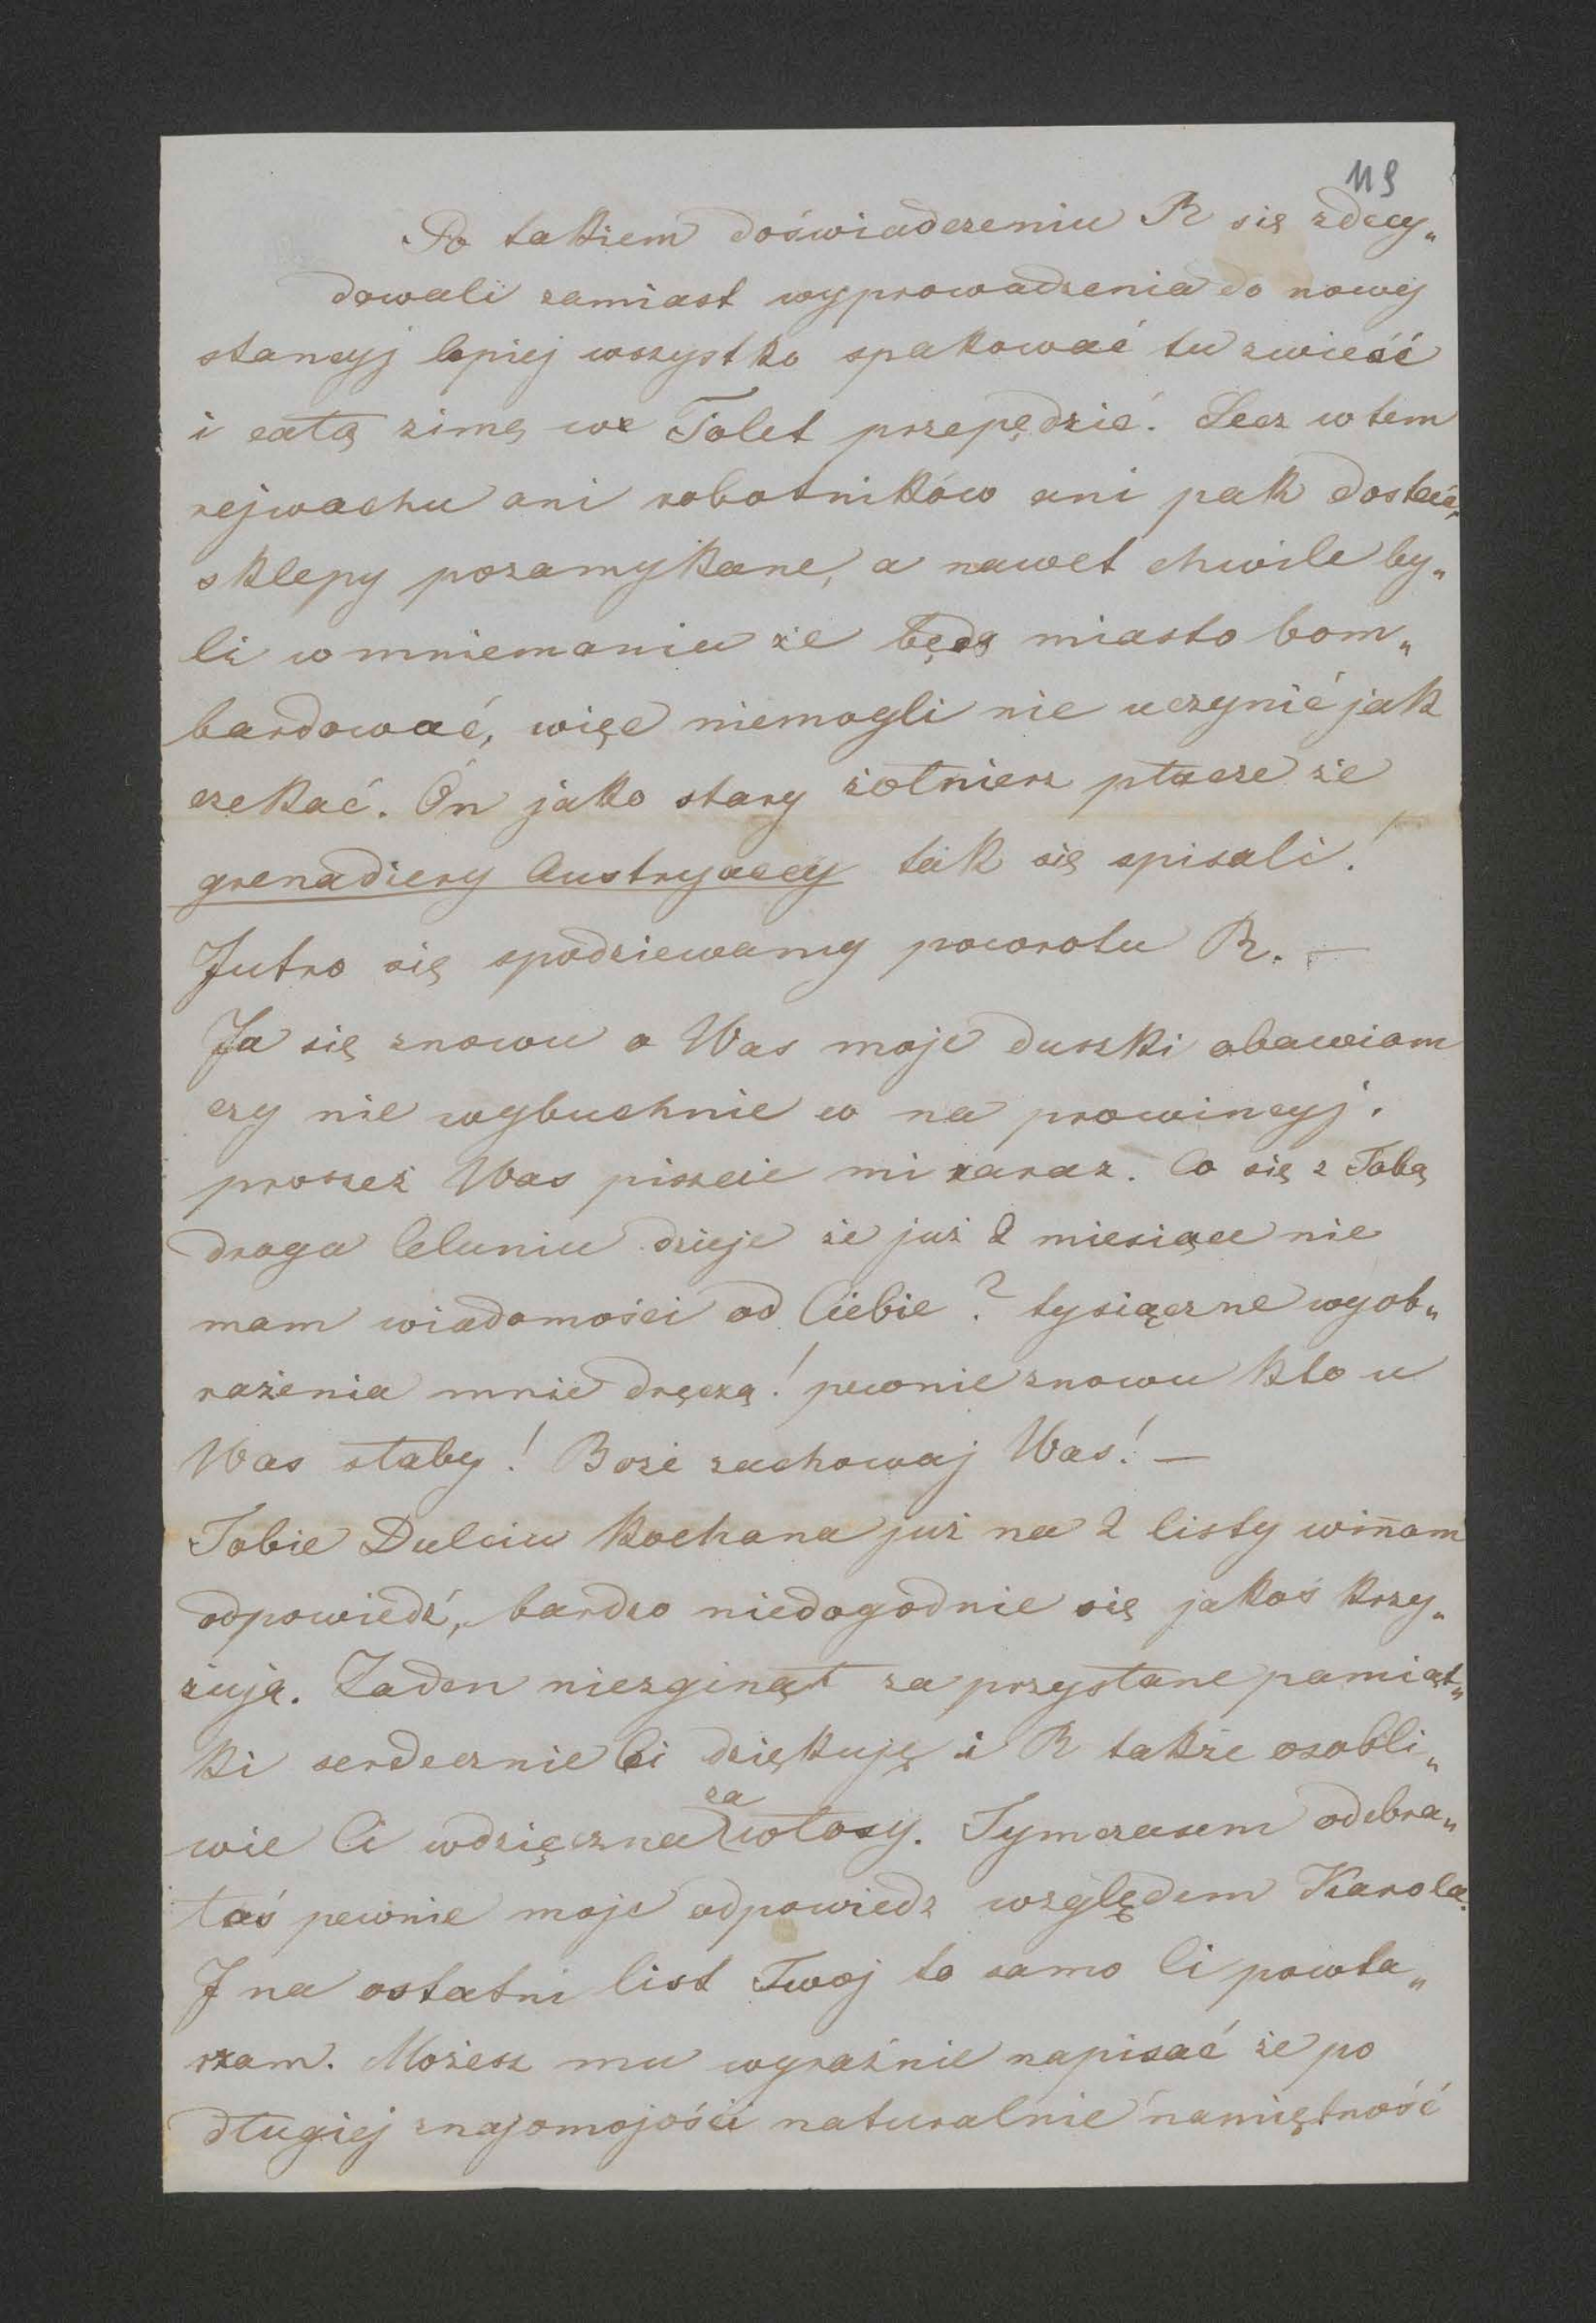 119
Po takiem doświadczeniu R się zdecy„
dowali zamiast wyprowadzenia do nowej
stancyj lepiej wszystko spakować tu zwieść
i całą zimę we Tolet przepędzić. Lecz w tem
rejwachu ani robotników ani pak dostać,
sklepy pozamykane, a nawet chwile by„
li w mniemaniu że będą miasto bom„
bardować, więc niemogli nic uczynić jak
czekać. On jako stary żołnierz płacze że
grenadiery Austryaccy tak się spisali!
Jutro się spodziewamy powrotu R. —
Ja się znowu o Was moje duszki obawiam
czy nie wybuchnie w na prowincyj.
proszeż Was piszcie mi zaraz. Co się z Tobą
droga Celuniu dzieje że już 2 miesiące nie
mam wiadomości od Ciebie? tysiączne wyob„
rażenia mnie dręczą! pewnie znowu kto u
Was słaby! Boże zachowaj Was! —
Tobie Dulciu kochana już na 2 listy win̄am
odpowiedź, bardzo niedogodnie się jakoś krzy„
żują. Żaden niezginął za przysłane pamiąt„
ki serdecznie Ci dziękuję i R także osobli„
wie Ci wdzięczna za włosy. Tymczasem odebra„
łaś pewnie moje odpowiedz względem Karola.
I na ostatni list Twoj to samo Ci powta„
rzam. Możesz mu wyraźnie napisać że po
długiej znajomojości naturalnie namiętność